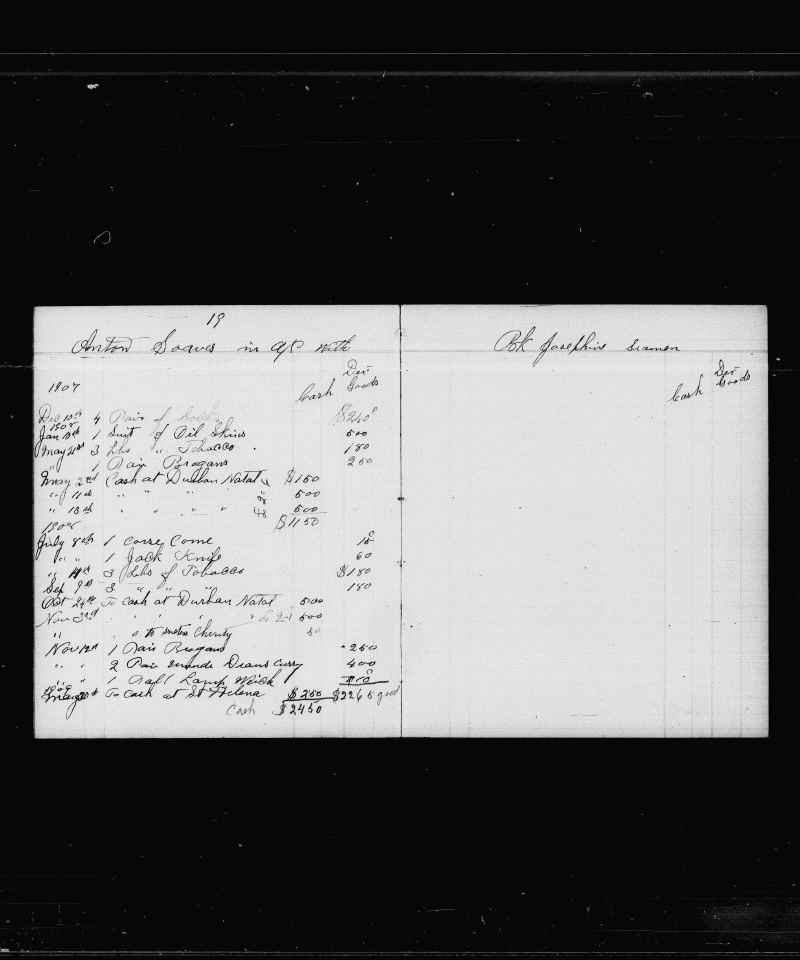 19
Anton Soares in a/c with
Bk Josephine Seamen
Cash Goods
Cash Goods
1907
Dec 10th 4 Pair of Socks $2 40
1908
Jan 10th 1 Suit of Oil Skins 5 00
May 21st 3 Lbs " Tobacco 1 80
" 1 Pair Brogans 2 50
May 2nd Cash at Durban Natal $1 50
" 11th " " " 5 00
" 13th " " " " 5 00
$11 50
1908
July 8th 1 Come 15
" " 1 Jack Knife 60
" 14th 3 Lbs of Tobacco $1 80
Sep 9th 3 " " " 1 80
Oct 24th To Cash at Durban Natal 5 00
Nov 3rd " " " " 5 00
" " to Cherity 50
Nov 12th 1 Pair Brogans 2 50
" " 2 Pair Curry 4 00
" " 1 Lamp Weick 10
1909
To Cash at St Helena $2 50 $22 65 good
Cash $24 50